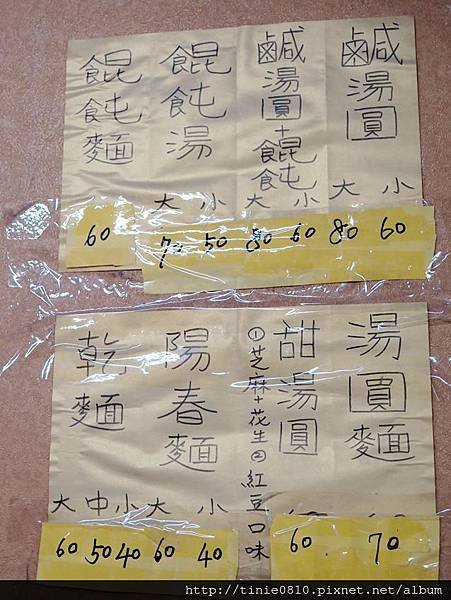 鹹湯圓
大 小
80 60
鹹湯圓+餛飩
大 小
80 60
餛飩湯
大 小
70 50
餛飩麵
60
湯圓麵
70
甜湯圓
①芝麻+花生②紅豆口味
60
陽春麵
大 小
60 40
乾麵
大 中 小
60 50 40
http://tinie0810.pixnet.net/album